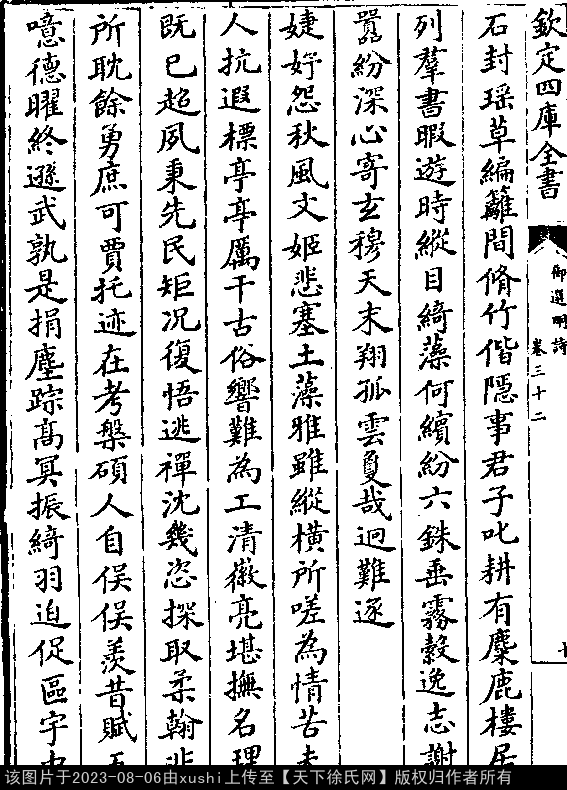 欽定四庫全書
御選明詩
卷三十二
石封瑶草編籬間脩竹偕隱事君子叱耕有麋鹿樓居
列羣書暇遊時縱目綺藻何繽紛六銖垂霧縠逸志謝
囂紛深心寄玄穆天末翔孤雲夐哉迥難逐
婕妤怨秋風文姬悲塞土藻雅雖縱橫所嗟為情苦
人抗遐標亭亭厲千古俗響難為工清徽亮堪撫名理
既已超夙秉先民矩况復悟逃禪沈幾恣探取柔翰
所耽餘勇庶可賈托迹在考槃碩人自俁俁羨昔賦
噫德曜終遜武孰是捐塵踪髙冥振綺羽迫促區宇
该图片于2023-08-06由xushi上传至【天下徐氏网】版权归作者所有